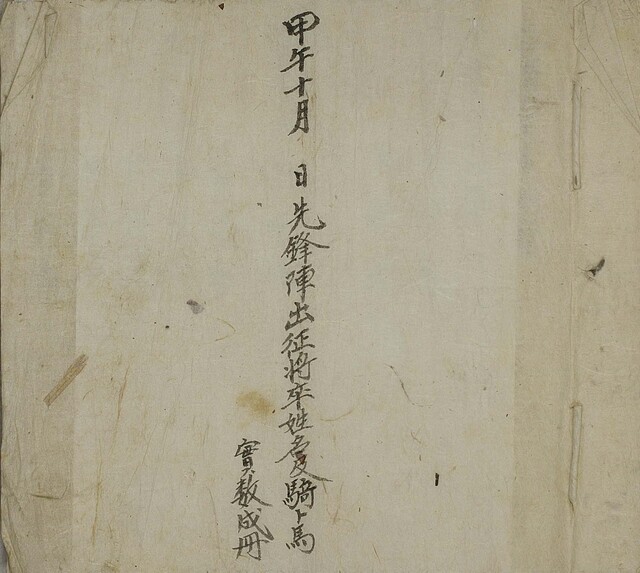 甲午十月 日先鋒陣出征將卒姓名及騎卜馬
實數成冊